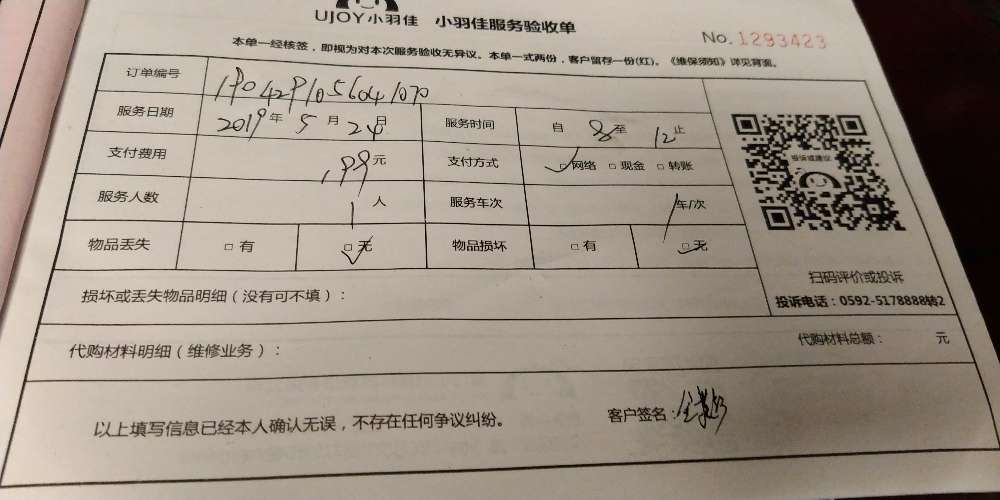 UJOY小羽佳 小羽佳服务验收单
No. 1293423
本单一经核签，即视为对本次服务验收无异议。本单一式两份，客户留存一份(红)。《维保须知》详见背面。
订单编号
服务日期 2019年 5月 24日 服务时间 自 8 至 12 止
支付费用 199元 支付方式 □网络 □现金 □转账
服务人数 1人 服务车次 1车/次
物品丢失 □有 □无 物品损坏 □有 □无
投诉或建议
扫码评价或投诉
投诉电话：0592-5178888转2
损坏或丢失物品明细（没有可不填）：
代购材料明细（维修业务）： 代购材料总额： 元
以上填写信息已经本人确认无误，不存在任何争议纠纷。 客户签名：